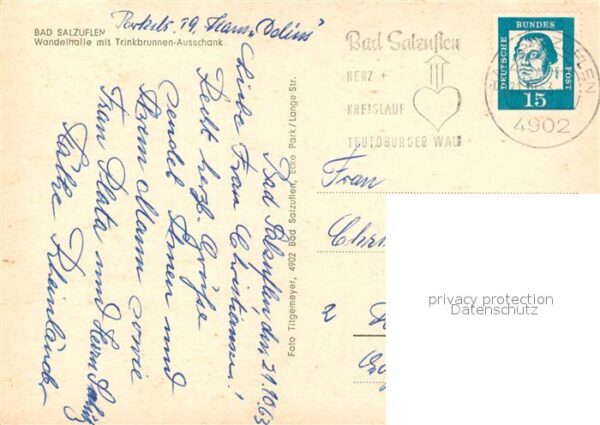 BAD SALZUFLEN
Wandelhalle mit Trinkbrunnen-Ausschank
Parkstr. 19, Haus „Delius“
Bad Salzuflen, den 21.10.63
Liebe Frau Christiansen!
Recht herzl. Grüße
sendet Ihnen und
Ihrem Mann sowie
Frau Plata und Herrn
Käthe Rheinländer
Foto Titgemeyer, 4902 Bad Salzuflen, Ecke Park/Lange Str.
Bad Salzuflen
HERZ +
KREISLAUF
TEUTOBURGER WALD
DEUTSCHE BUNDESPOST
15
4902
Frau
Chr
2
privacy protection
Datenschutz